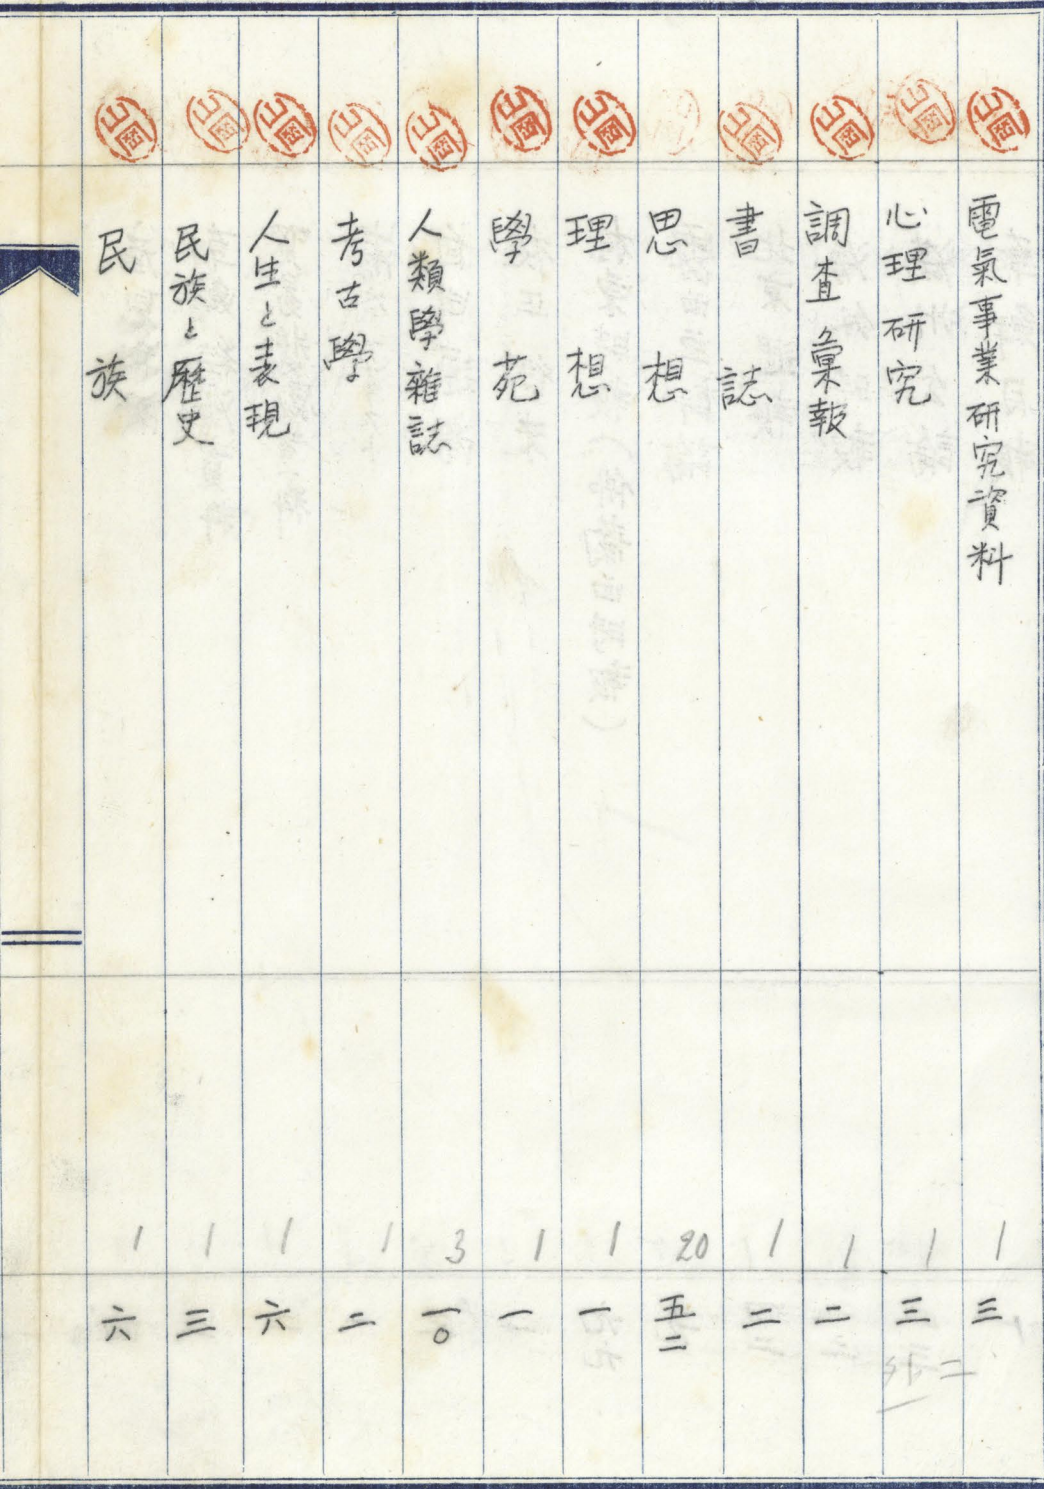 山岡 電氣事業研究資料 1 三
山岡 心理研究 1 三 外二
山岡 調査彙報 1 二
山岡 書誌 1 二
山岡 思想 20 五二
山岡 理想 1 一
山岡 學苑 1 一
山岡 人類學雜誌 3 一〇
山岡 考古學 1 二
山岡 人生と表現 1 六
山岡 民族と歷史 1 三
山岡 民族 1 六